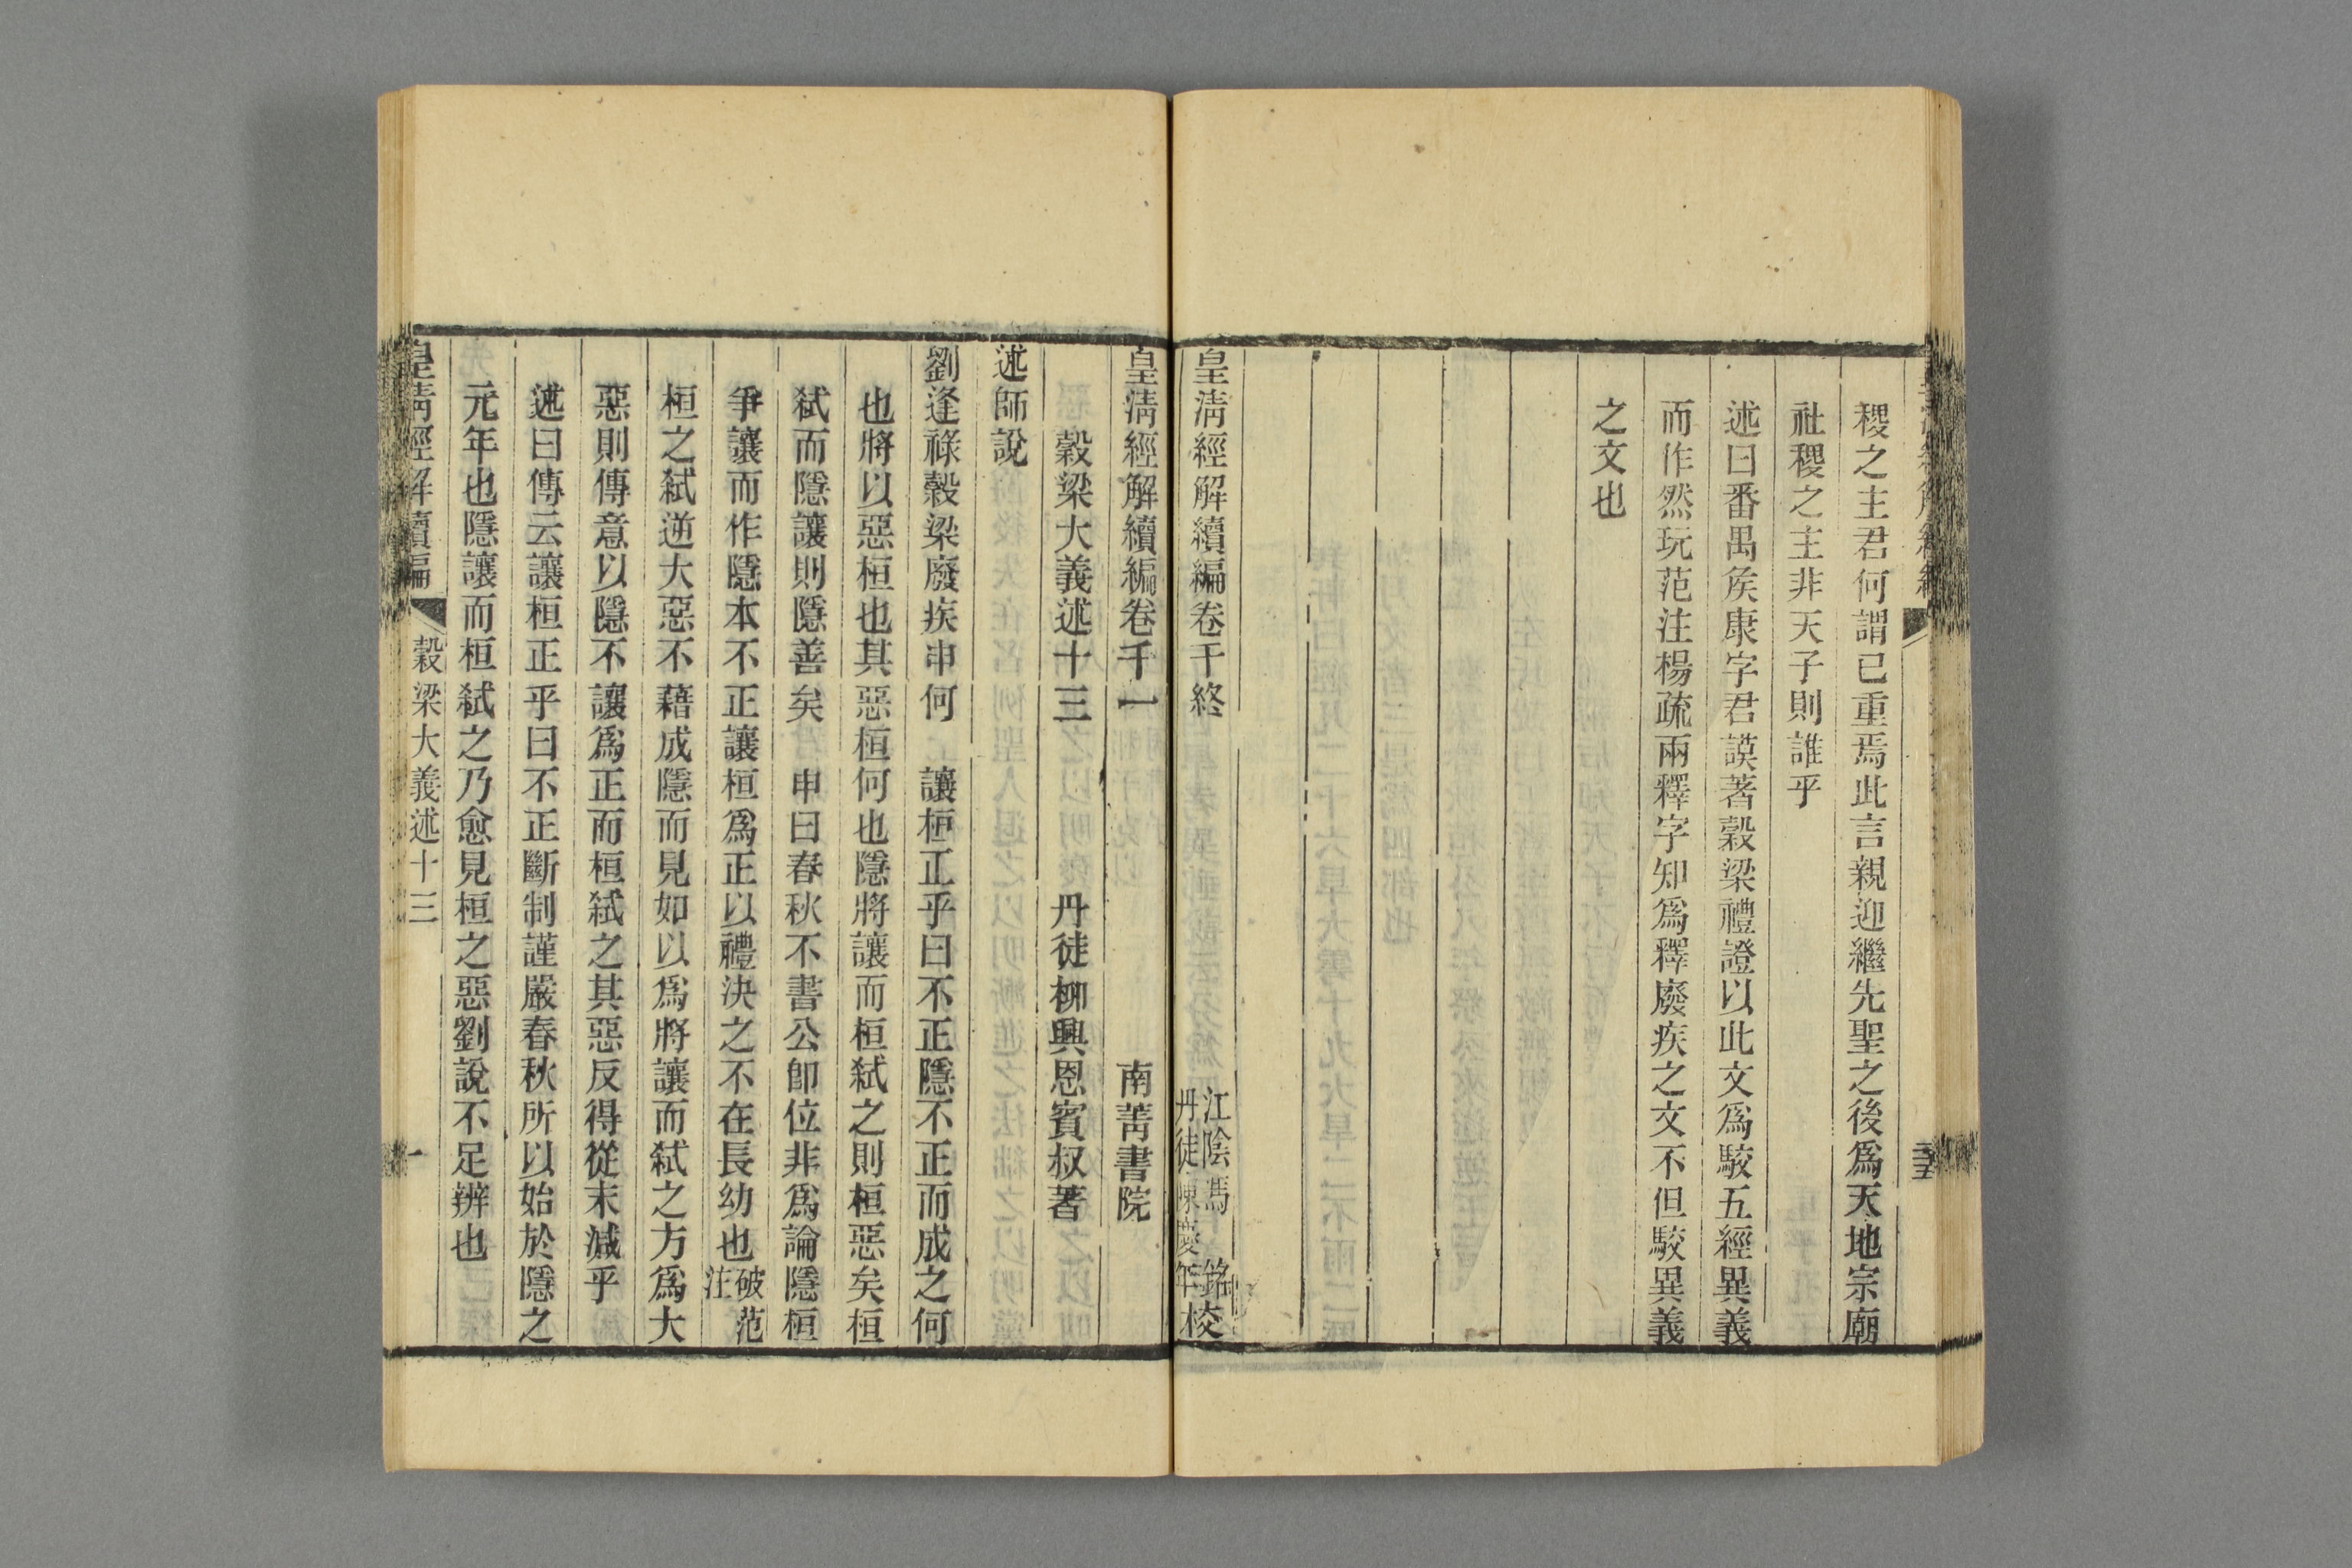 稷之主君何謂已重焉此言親迎繼先聖之後爲天地宗廟
社稷之主非天子則誰乎
述曰番禺矦康字君謨著穀梁禮證以此文爲駮五經異義
而作然玩范注楊疏兩釋字知爲釋廢疾之文不但駮異義
之文也
皇淸經解續編卷千終
江陰馮銘
丹徒陳慶年校
皇淸經解續編卷千一
南菁書院
穀梁大義述十三
丹徒柳興恩賓叔著
述師說
劉逢祿穀梁廢疾申何　讓桓正乎曰不正隱不正而成之何
也將以惡桓也其惡桓何也隱將讓而桓弑之則桓惡矣桓
弑而隱讓則隱善矣　申曰春秋不書公卽位非爲論隱桓
爭讓而作隱本不正讓桓爲正以禮決之不在長幼也破范
注
桓之弑逆大惡不藉成隱而見如以爲將讓而弑之方爲大
惡則傳意以隱不讓爲正而桓弑之其惡反得從末減乎
述曰傳云讓桓正乎曰不正斷制謹嚴春秋所以始於隱之
元年也隱讓而桓弑之乃愈見桓之惡劉說不足辨也
皇淸經解續編
穀梁大義述十三
一